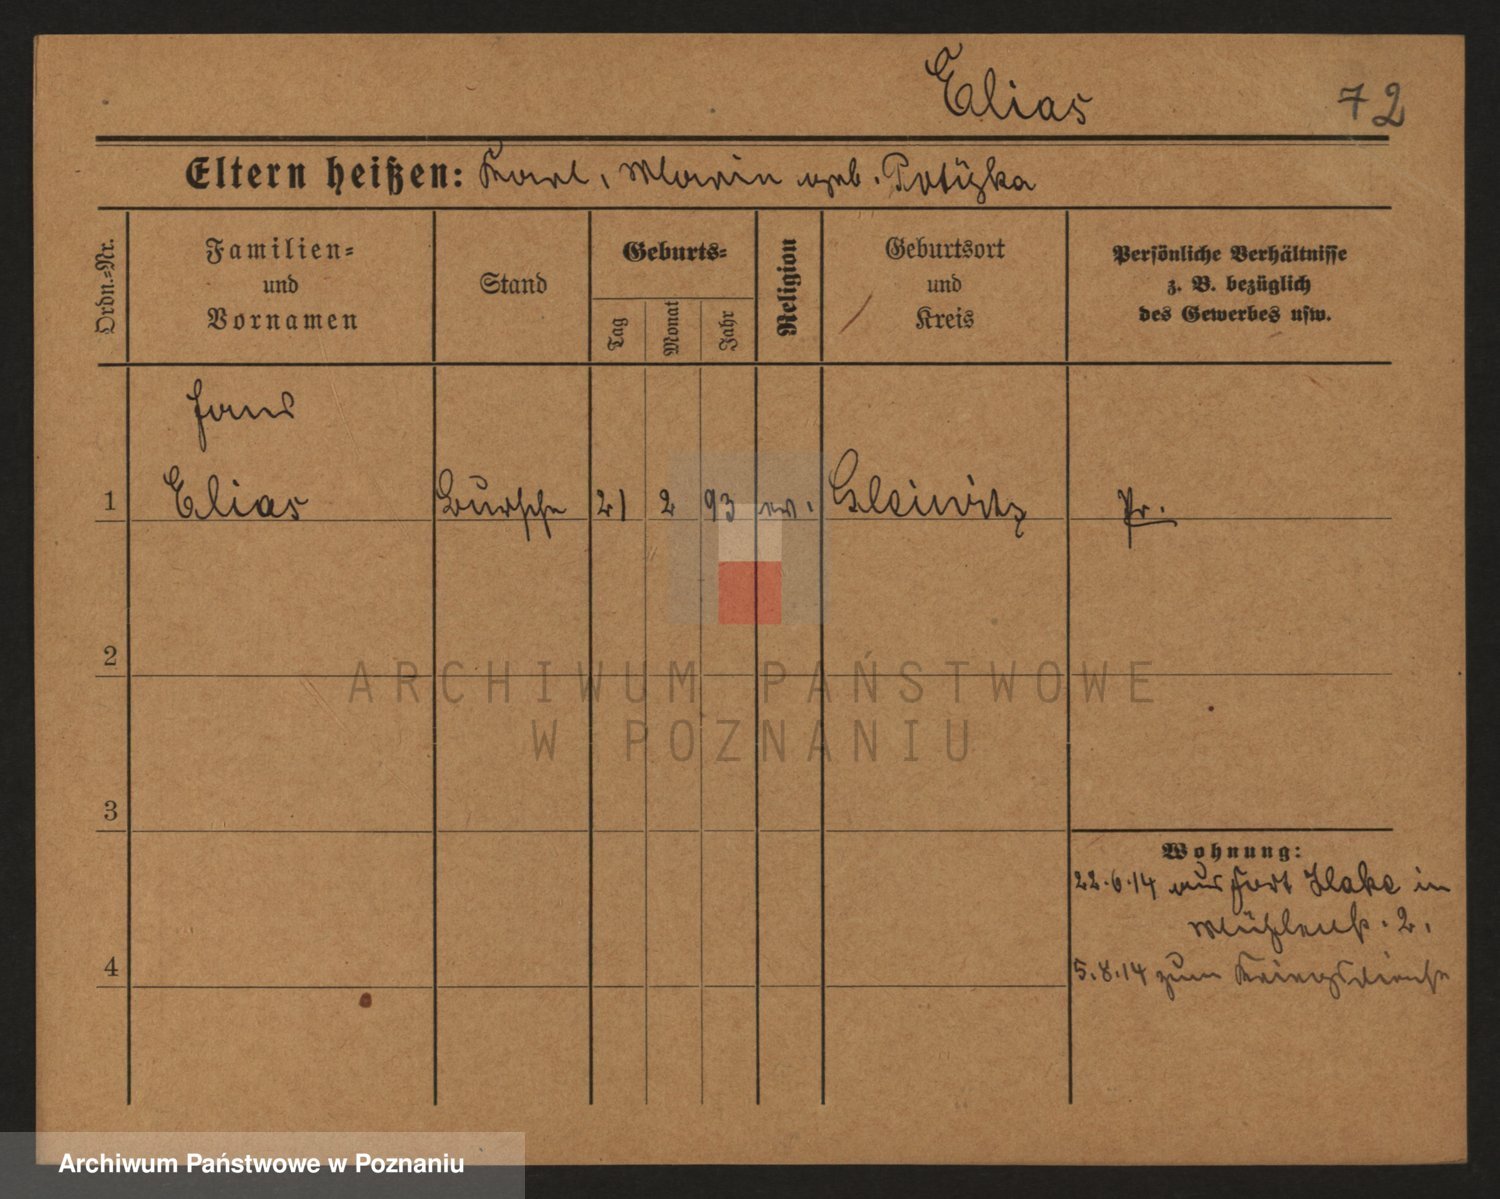 Elias
72
Eltern heißen: Karl, Marie geb. Potyka
Ordn.=Nr.
Familien=
und
Vornamen
Stand
Geburts=
Tag
Monat
Jahr
Religion
Geburtsort
und
Kreis
Persönliche Verhältnisse
z. B. bezüglich
des Gewerbes usw.
1
Elias
Bursche
21
2
93
ev.
Gleiwitz
Pr.
2
ARCHIWUM PAŃSTWOWE
W POZNANIU
3
Wohnung:
22.6.14 aus Fort in
Mühlenstr. 2.
4
5.8.14 zum Kriegsdienst
Archiwum Państwowe w Poznaniu